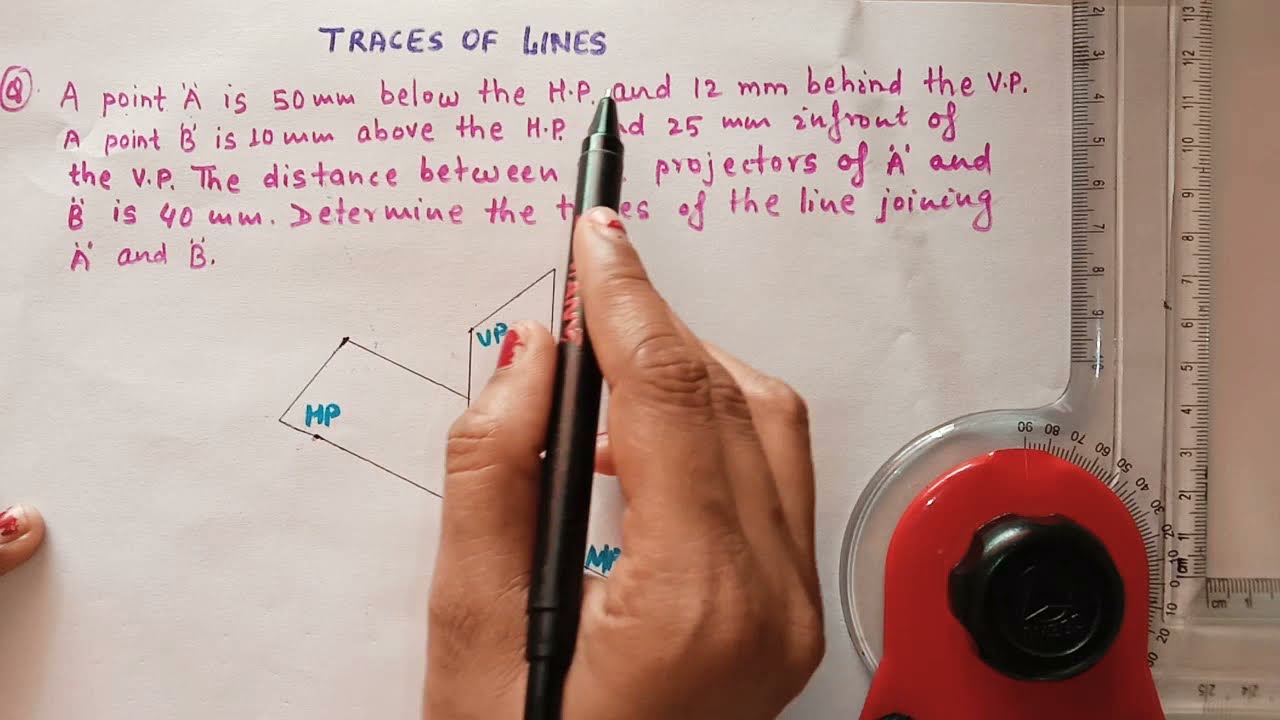 TRACES OF LINES
Q. A point 'A' is 50 mm below the H.P. and 12 mm behind the V.P.
A point 'B' is 10 mm above the H.P. 25 mm infront of
the V.P. The distance between projectors of 'A' and
'B' is 40 mm. Determine the of the line joining
'A' and 'B'.
VP
HP
90 80 70 60 50 40 30 20 10 0 10 20 30
2 3 4 5 6 7 8 9 10
13 12 11 10 9 8 7 6 5 4 3 2 1
cm
cm 1